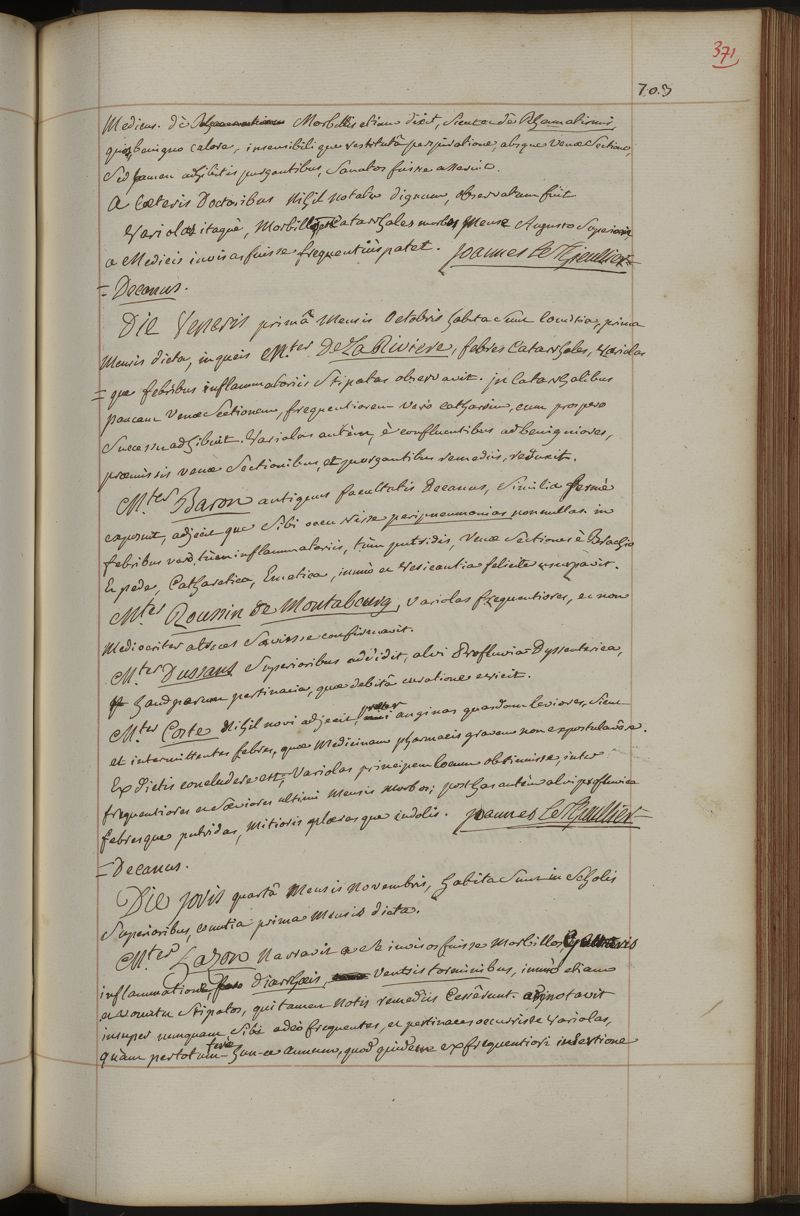 371
703
Medicus. dè Morbillis etiam dixit, sicut et dè Rhumatismis,
quos benigno calore, insensibili que restitutâ perspiratione, absque venæ Sectione,
Sed tamen adhibitis purgantibus, Sanatos fuisse asseruit.
A Cæteris Doctoribus Nihil notatu dignum, observatum fuit
Variolas itaquè, Morbillosque Catarrhales morbos Mense Augusto Superiori,
a Medicis invisos fuisse frequentiùs patet. Joannes Le Thieullier
= Decanus.
Die Veneris primâ Mensis Octobris habita Sunt Comitia, prima
Mensis dicta, in queis M.ter De La Riviere, febres Catarrhales, Variolas
= que febribus inflammatoriis Stipatas observavit. in Catarrhalibus
paucam venæ Sectionem, frequentiorem verò catharsim, cum prospero
Successu adhibuit. Variolas autèm, è confluentibus ad benigniores,
præmissis venæ Sectionibus, et purgantibus remediis, reduxit.
M.ter Baron antiquus facultatis Decanus, Similia fermè
exposuit, adjecit que Sibi occurrisse peripneumonias nonnullas in
febribus tùm inflammatoriis, tùm putridis, Venæ Sectiones è Brachio
Et pede, Cathartica, Emetica, immò et vesicantia feliciter usurpavit.
M.ter Roussin de Montabourg, Variolas frequentiores, et non
Mediocriter atroces Sæviisse confirmavit.
M.ter Dussans Superioribus addidit, alvi Profluvia Dyssenterica,
haud parum pertinacia, quæ debitâ curatione evicit.
M.ter Coste Nihil novi adjecit, præter anginas quasdam leviores, Sicut
et intermittentes febres, quæ Medicinam pharmaciis gravem non expostulavêre.
Ex dictis concludere est, Variolas principem locum obtinuisse, inter
frequentiores et Sæviores ultimi Mensis Morbos; post has autèm alvi profluvia
febresque putridas, Mitioris plærasque indolis. Joannes Le Thieullier
= Decanus.
Die Jovis quartâ Mensis Novembris, habita Sunt in Scholis
Superioribus, comitia prima Mensis dicta.
M.ter Lazon Narravit a Se invisos fuisse Morbillos
inflammatione, diarrhæis, ventris torminibus, immò etiam
et vomitu Stipatos, qui tamen Notis remediis Cessêrunt. adnotavit
insuper nunquam Sibi adeò frequentes, et pertinaces occurrisse Variolas,
quàm per totum ferè hun-ce annum, quod quidem ex frequentiori insertione